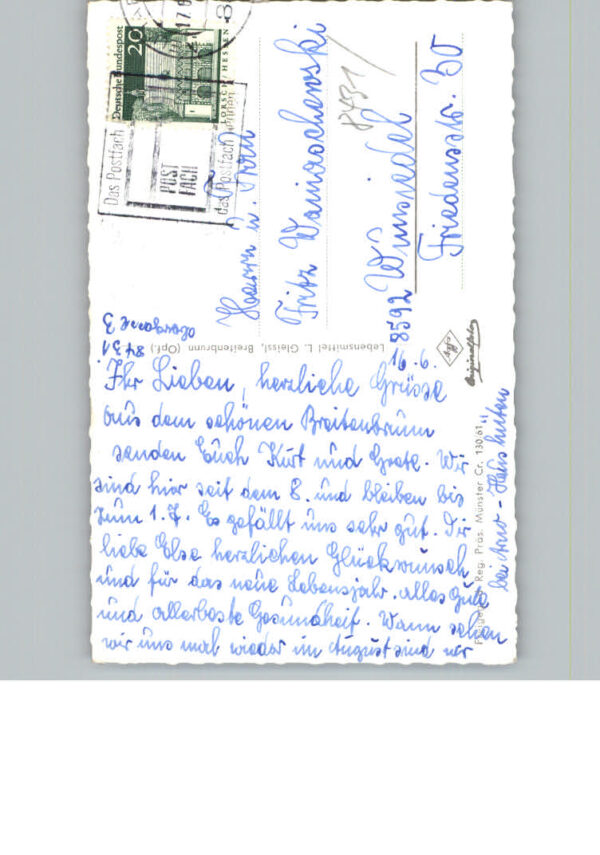 16.6.
Ihr Lieben, herzliche Grüsse
aus dem schönen Breitenbrunn
senden Euch Kurt und Grete. Wir
sind hier seit dem 8. und bleiben bis
zum 1.7. Es gefällt uns sehr gut. Dir
liebe Else herzlichen Glückwunsch
und für das neue Lebensjahr alles Gute
und allerbeste Gesundheit. Wann sehen
wir uns mal wieder im August sind wir
8431
Lebensmittel L. Gleissl, Breitenbrunn (Opf.)
Agfa
Originalfoto
Reg. Präs. Münster Cr. 130/61
Deutsche Bundespost
20
LORSCH/HESSEN
17.6
8
Das Postfach
POST
FACH
das Postfach
Herrn u. Frau
Fritz
8592 Wunsiedel
Friedensstr. 30
8431